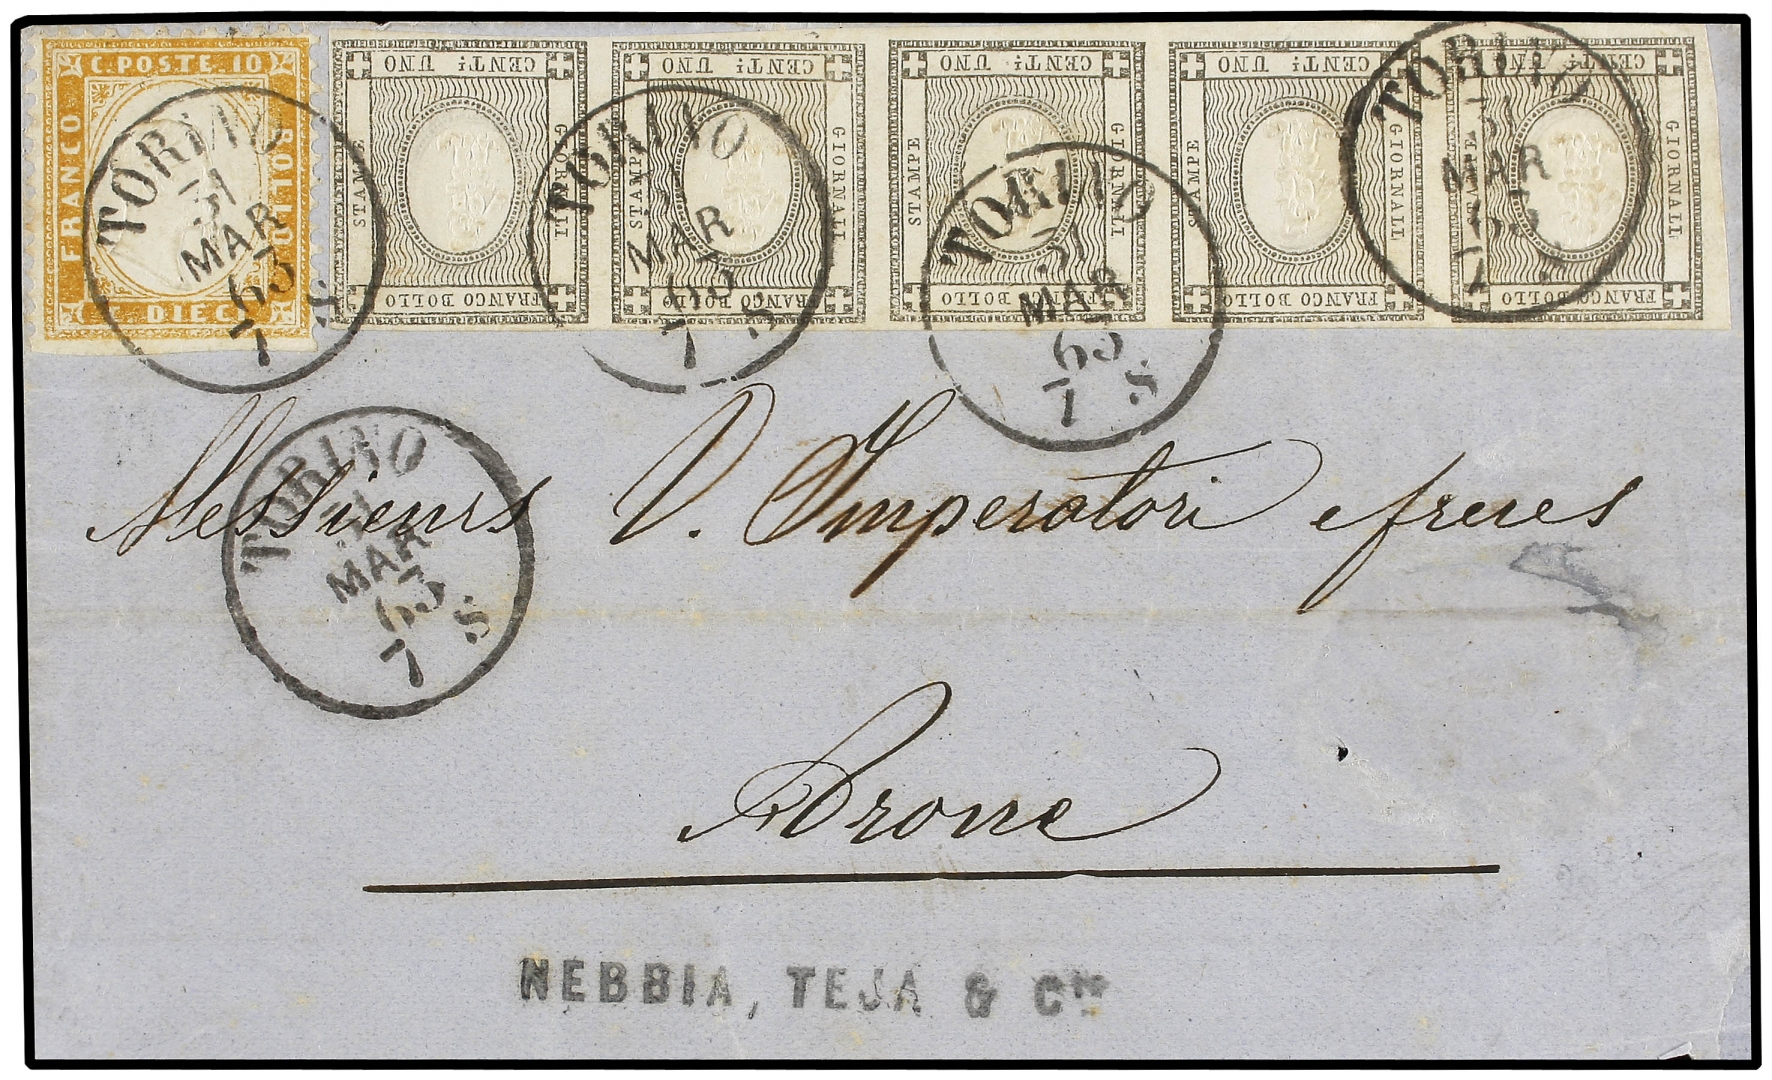 C. POSTE. 10
FRANCO
BOLLO
C. DIECI
CENT: UNO
STAMPE
GIORNALI
FRANCO BOLLO
CENT: UNO
GIORNALI
FRANCO BOLLO
CENT: UNO
STAMPE
GIORNALI
FRANCO BOLLO
CENT: UNO
STAMPE
FRANCO BOLLO
CENT: UNO
STAMPE
GIORNALI
FRANCO BOLLO
TORINO
31
MAR
63
7 S
TORINO
MAR
63
7 S
TORINO
31
MAR
63
7 S
TORINO
31
MAR
TORINO
31
MAR
63
7 S
Messieurs V. Imperatori frères
Arone
NEBBIA, TEJA & C